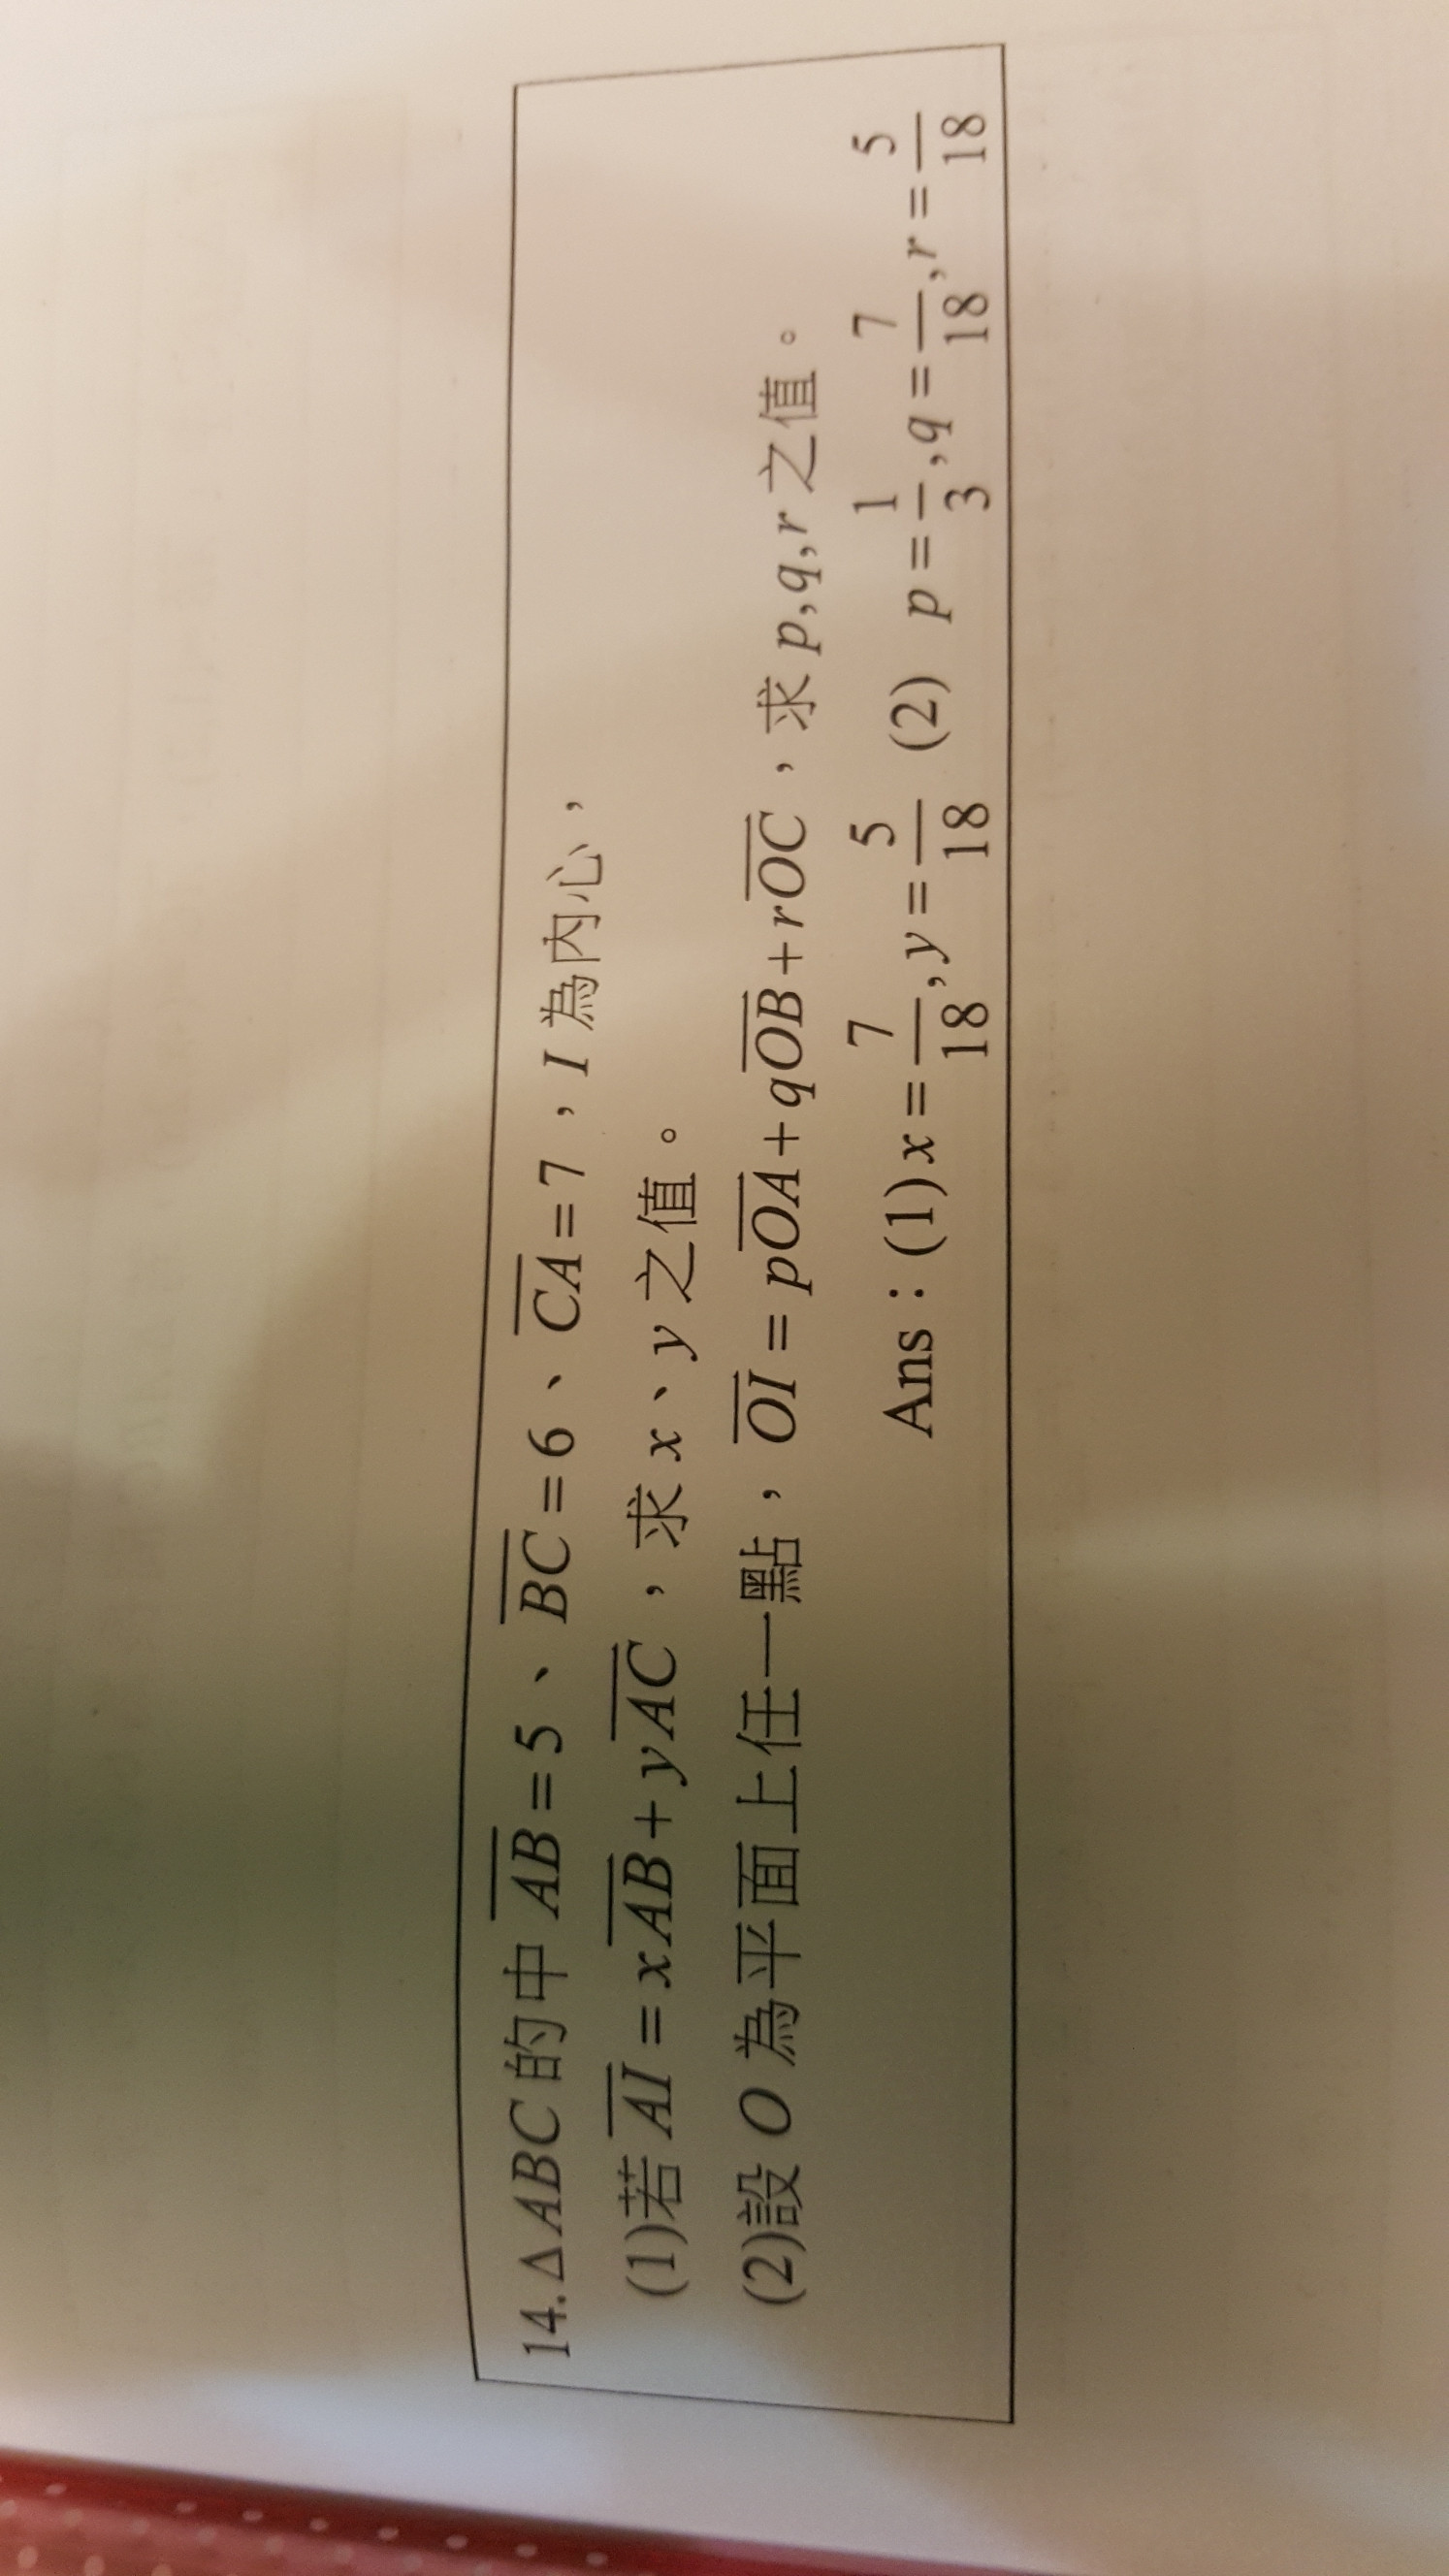 14. △ABC 的中 \overline{AB}=5、\overline{BC}=6、\overline{CA}=7，I 為內心，
(1)若 \overline{AI}=x\overline{AB}+y\overline{AC}，求 x、y 之值。
(2)設 O 為平面上任一點，\overline{OI}=p\overline{OA}+q\overline{OB}+r\overline{OC}，求 p,q,r 之值。
Ans：(1) x=\frac{7}{18},y=\frac{5}{18} (2) p=\frac{1}{3},q=\frac{7}{18},r=\frac{5}{18}